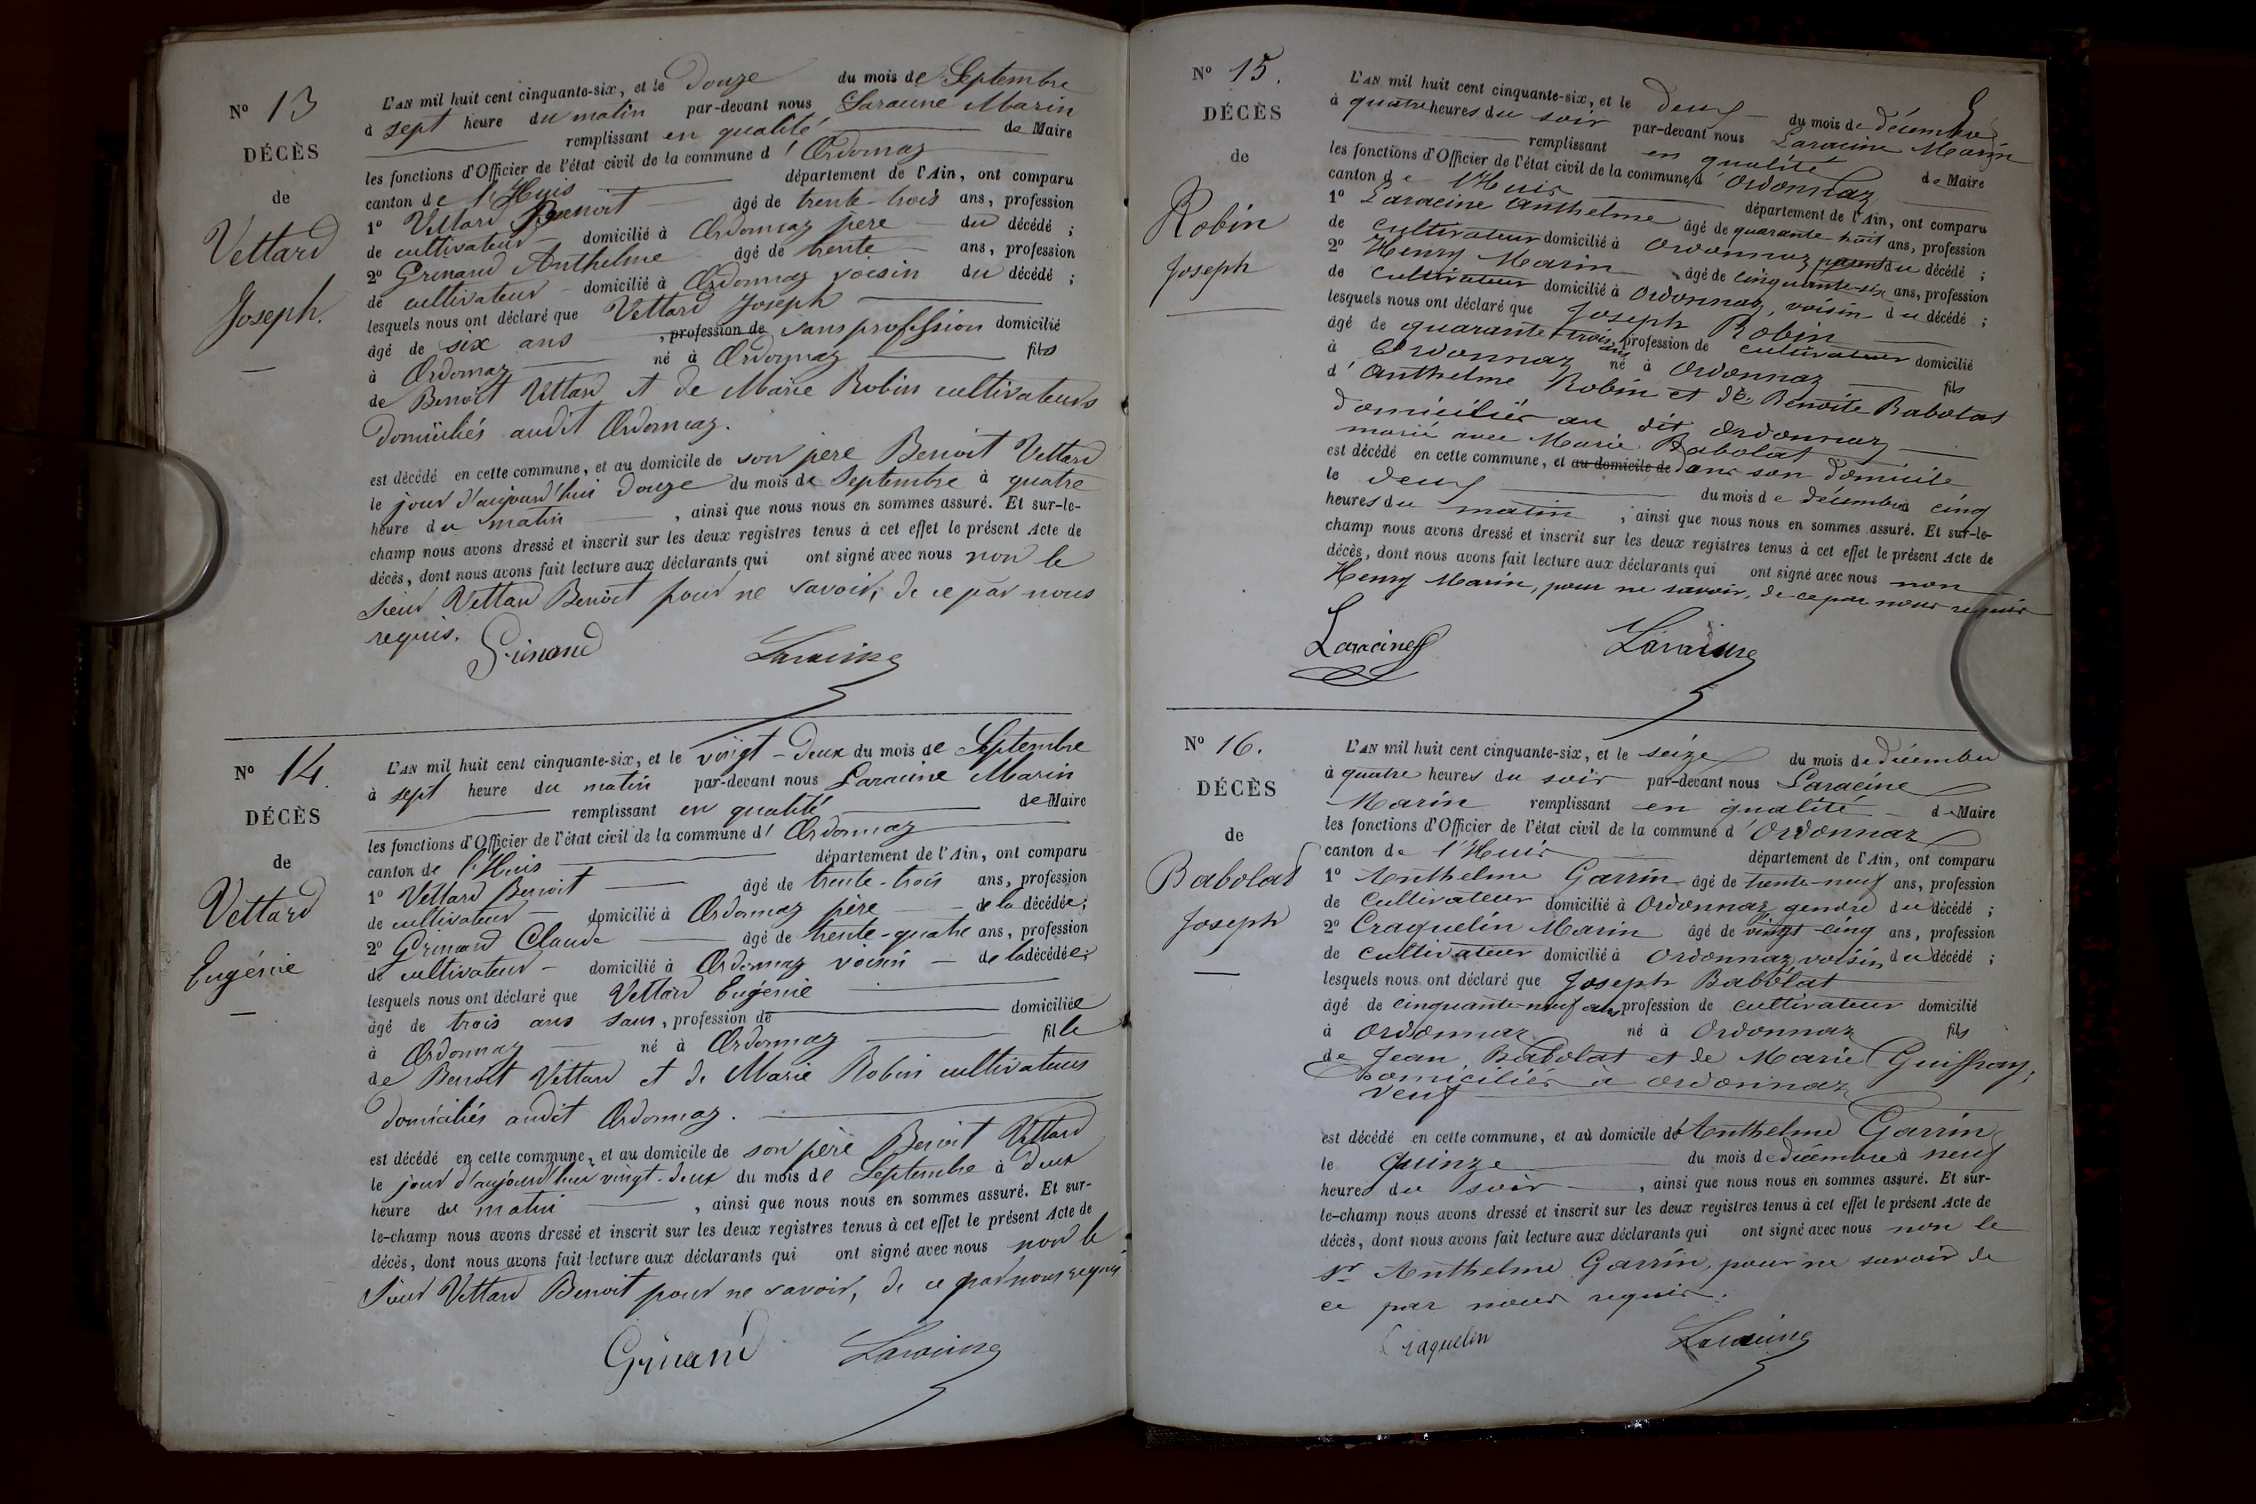 N° 13
DÉCÈS
de
Vettard
Joseph.
L'AN mil huit cent cinquante-six, et le Douze du mois de Septembre
à sept heure du matin par-devant nous Laracine Marin
remplissant en qualité de Maire
les fonctions d'Officier de l'état civil de la commune d' Ordonnaz
canton de l'Huis département de l'Ain, ont comparu
1° Vettard Benoit âgé de trente-trois ans, profession
de cultivateur domicilié à Ordonnaz père du décédé ;
2° Grinand Anthelme âgé de trente ans, profession
de cultivateur domicilié à Ordonnaz voisin du décédé ;
lesquels nous ont déclaré que Vettard Joseph
âgé de six ans , profession de sans profession domicilié
à Ordonnaz né à Ordonnaz fils
de Benoit Vettard et de Marie Robin cultivateurs
domiciliés audit Ordonnaz.
est décédé en cette commune, et au domicile de son père Benoit Vettard
le jour d'aujourd'hui Douze du mois de Septembre à quatre
heure du matin , ainsi que nous nous en sommes assuré. Et sur-le-
champ nous avons dressé et inscrit sur les deux registres tenus à cet effet le présent Acte de
décès, dont nous avons fait lecture aux déclarants qui ont signé avec nous non le
sieur Vettard Benoit pour ne savoir, de ce par nous
requis.
Grinand Laracine
N° 14.
DÉCÈS
de
Vettard
Eugénie
L'AN mil huit cent cinquante-six, et le vingt-deux du mois de Septembre
à sept heure du matin par-devant nous Laracine Marin
remplissant en qualité de Maire
les fonctions d'Officier de l'état civil de la commune d' Ordonnaz
canton de l'Huis département de l'Ain, ont comparu
1° Vettard Benoit âgé de trente-trois ans, profession
de cultivateur domicilié à Ordonnaz père de la décédée ;
2° Grinand Claude âgé de trente-quatre ans, profession
de cultivateur domicilié à Ordonnaz voisin de la décédée ;
lesquels nous ont déclaré que Vettard Eugénie
âgé de trois ans sans , profession de domiciliée
à Ordonnaz né à Ordonnaz fille
de Benoit Vettard et de Marie Robin cultivateurs
domiciliés audit Ordonnaz.
est décédé en cette commune, et au domicile de son père Benoit Vettard
le jour d'aujourd'hui vingt-deux du mois de Septembre à deux
heure du matin , ainsi que nous nous en sommes assuré. Et sur-
le-champ nous avons dressé et inscrit sur les deux registres tenus à cet effet le présent Acte de
décès, dont nous avons fait lecture aux déclarants qui ont signé avec nous non le
sieur Vettard Benoit pour ne savoir, de ce par nous requis
Grinand Laracine
N° 15.
DÉCÈS
de
Robin
Joseph
L'AN mil huit cent cinquante-six, et le deux du mois de décembre
à quatre heures du soir par-devant nous Laracine Marin
remplissant en qualité de Maire
les fonctions d'Officier de l'état civil de la commune d' Ordonnaz
canton de l'Huis département de l'Ain, ont comparu
1° Laracine Anthelme âgé de quarante-huit ans, profession
de cultivateur domicilié à Ordonnaz parent du décédé ;
2° Henry Marin âgé de cinquante-six ans, profession
de cultivateur domicilié à Ordonnaz, voisin du décédé ;
lesquels nous ont déclaré que Joseph Robin
âgé de quarante trois ans profession de cultivateur domicilié
à Ordonnaz né à Ordonnaz fils
d' Anthelme Robin et de Benoite Babolat
domiciliés au dit Ordonnaz
marié avec Marie Babolat
est décédé en cette commune, et au domicile de dans son domicile
le deux du mois de décembre à cinq
heures du matin , ainsi que nous nous en sommes assuré. Et sur-le-
champ nous avons dressé et inscrit sur les deux registres tenus à cet effet le présent Acte de
décès, dont nous avons fait lecture aux déclarants qui ont signé avec nous non
Henry Marin, pour ne savoir, de ce par nous requis
Laracine Laracine
N° 16.
DÉCÈS
de
Babolat
Joseph
L'AN mil huit cent cinquante-six, et le seize du mois de décembre
à quatre heures du soir par-devant nous Laracine
Marin remplissant en qualité d Maire
les fonctions d'Officier de l'état civil de la commune d 'Ordonnaz
canton de l'Huis département de l'Ain, ont comparu
1° Anthelme Garrin âgé de trente-neuf ans, profession
de cultivateur domicilié à Ordonnaz gendre du décédé ;
2° Craquelin Marin âgé de vingt-cinq ans, profession
de cultivateur domicilié à Ordonnaz voisin du décédé ;
lesquels nous ont déclaré que Joseph Babolat
âgé de cinquante-neuf ans profession de cultivateur domicilié
à Ordonnaz né à Ordonnaz fils
de Jean Babolat et de Marie
domiciliés à Ordonnaz
veuf
est décédé en cette commune, et au domicile de Anthelme Garrin
le quinze du mois de décembre à neuf
heures du soir , ainsi que nous nous en sommes assuré. Et sur-
le-champ nous avons dressé et inscrit sur les deux registres tenus à cet effet le présent Acte de
décès, dont nous avons fait lecture aux déclarants qui ont signé avec nous non le
sr Anthelme Garrin, pour ne savoir de
ce par nous requis.
Craquelin Laracine